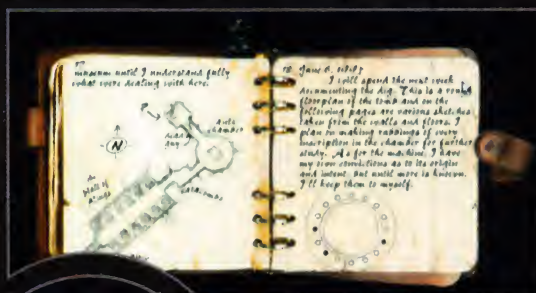 museum until I understand fully
what were dealing with here.
Ante
chamber
N
catacombs
June 6,
I will spend the next week
documenting the dig. This is a rough
floorplan of the tomb and on the
following pages are various sketches
taken from the walls and floors. I
plan on making rubbings of every
inscription in the chamber for further
study. As for the machine, I have
my own convictions as to its origin
and intent. But until more is known,
I'll keep them to myself.